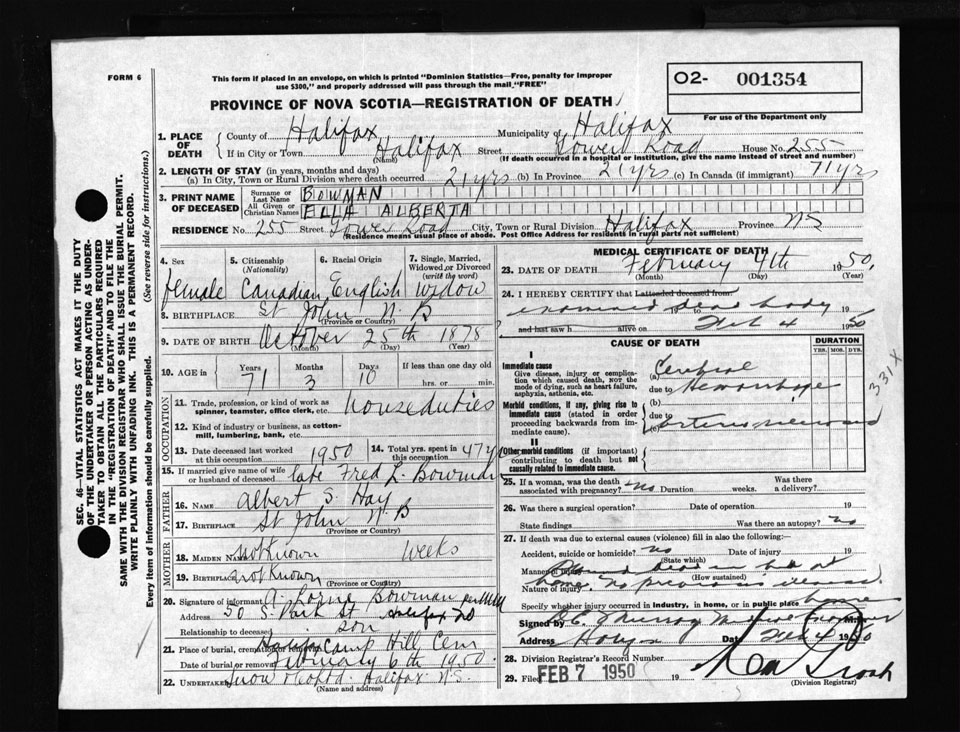 FORM 6
This form if placed in an envelope, on which is printed "Dominion Statistics—Free, penalty for improper
use $300," and properly addressed will pass through the mail "FREE"
O2- 001354
For use of the Department only
PROVINCE OF NOVA SCOTIA—REGISTRATION OF DEATH
1. PLACE OF DEATH
County of Halifax Municipality of Halifax
If in City or Town Halifax (Name) Street Tower Road House No. 255
(If death occurred in a hospital or institution, give the name instead of street and number)
2. LENGTH OF STAY (in years, months and days)
(a) In City, Town or Rural Division where death occurred 21 yrs (b) In Province 21 yrs (c) In Canada (if immigrant) 71 yrs
3. PRINT NAME OF DECEASED
Surname or Last Name BOWMAN
All Given or Christian Names ELLA ALBERTA
RESIDENCE No. 255 Street Tower Road City, Town or Rural Division Halifax Province NS
(Residence means usual place of abode. Post Office Address for residents in rural parts not sufficient)
4. Sex female
5. Citizenship (Nationality) Canadian
6. Racial Origin English
7. Single, Married, Widowed or Divorced (write the word) Widow
8. BIRTHPLACE St John N B
(Province or Country)
9. DATE OF BIRTH October 25th 1878
(Month) (Day) (Year)
10. AGE in Years 71 Months 3 Days 10 If less than one day old hrs. or min.
OCCUPATION
11. Trade, profession, or kind of work as spinner, teamster, office clerk, etc. house duties
12. Kind of industry or business, as cotton-mill, lumbering, bank, etc.
13. Date deceased last worked at this occupation 1950
14. Total yrs. spent in this occupation 47 yrs
15. If married give name of wife or husband of deceased late Fred L. Bowman
FATHER
16. NAME Albert S. Hay
17. BIRTHPLACE St John N B
(Province or Country)
MOTHER
18. MAIDEN NAME not known Weeks
19. BIRTHPLACE not known
(Province or Country)
20. Signature of informant A. Lorne Bowman
Address 50 S. Park St Halifax NS
Relationship to deceased son
21. Place of burial, cremation or removal Camp Hill Cem
Date of burial or removal February 6th 1950
22. Undertaker Snow & Co Ltd. Halifax N.S.
(Name and address)
MEDICAL CERTIFICATE OF DEATH
23. DATE OF DEATH February 4th 1950
(Month) (Day) (Year)
24. I HEREBY CERTIFY that I attended deceased from
examined body 19
19 to Feb 4 1950
and last saw h alive on
CAUSE OF DEATH
DURATION
YRS. MOS. DYS.
I
Immediate cause
Give disease, injury or complication which caused death, NOT the mode of dying, such as heart failure, asphyxia, asthenia, etc.
(a) Cerebral
due to Hemorrhage
331 x
Morbid conditions, if any, giving rise to immediate cause (stated in order proceeding backwards from immediate cause).
(b)
due to
(c)
II
Other morbid conditions (if important) contributing to death but not causally related to immediate cause.
25. If a woman, was the death associated with pregnancy? no Duration weeks. Was there a delivery?
26. Was there a surgical operation? Date of operation 19
State findings Was there an autopsy? no
27. If death was due to external causes (violence) fill in also the following:
Accident, suicide or homicide? no Date of injury 19
(State which)
Manner of injury Found dead in bed at
(How sustained)
Nature of injury home. No previous illness.
Specify whether injury occurred in industry, in home, or in public place home
Signed by Murray
Address Date Feb 4 1950
28. Division Registrar's Record Number
29. Filed FEB 7 1950 19
(Division Registrar)
SEC. 46—VITAL STATISTICS ACT MAKES IT THE DUTY
OF THE UNDERTAKER OR PERSON ACTING AS UNDER-
TAKER TO OBTAIN ALL THE PARTICULARS REQUIRED
IN THE "REGISTRATION OF DEATH" AND TO FILE THE
SAME WITH THE DIVISION REGISTRAR WHO SHALL ISSUE THE BURIAL PERMIT.
WRITE PLAINLY WITH UNFADING INK. THIS IS A PERMANENT RECORD.
Every item of information should be carefully supplied. (See reverse side for instructions.)